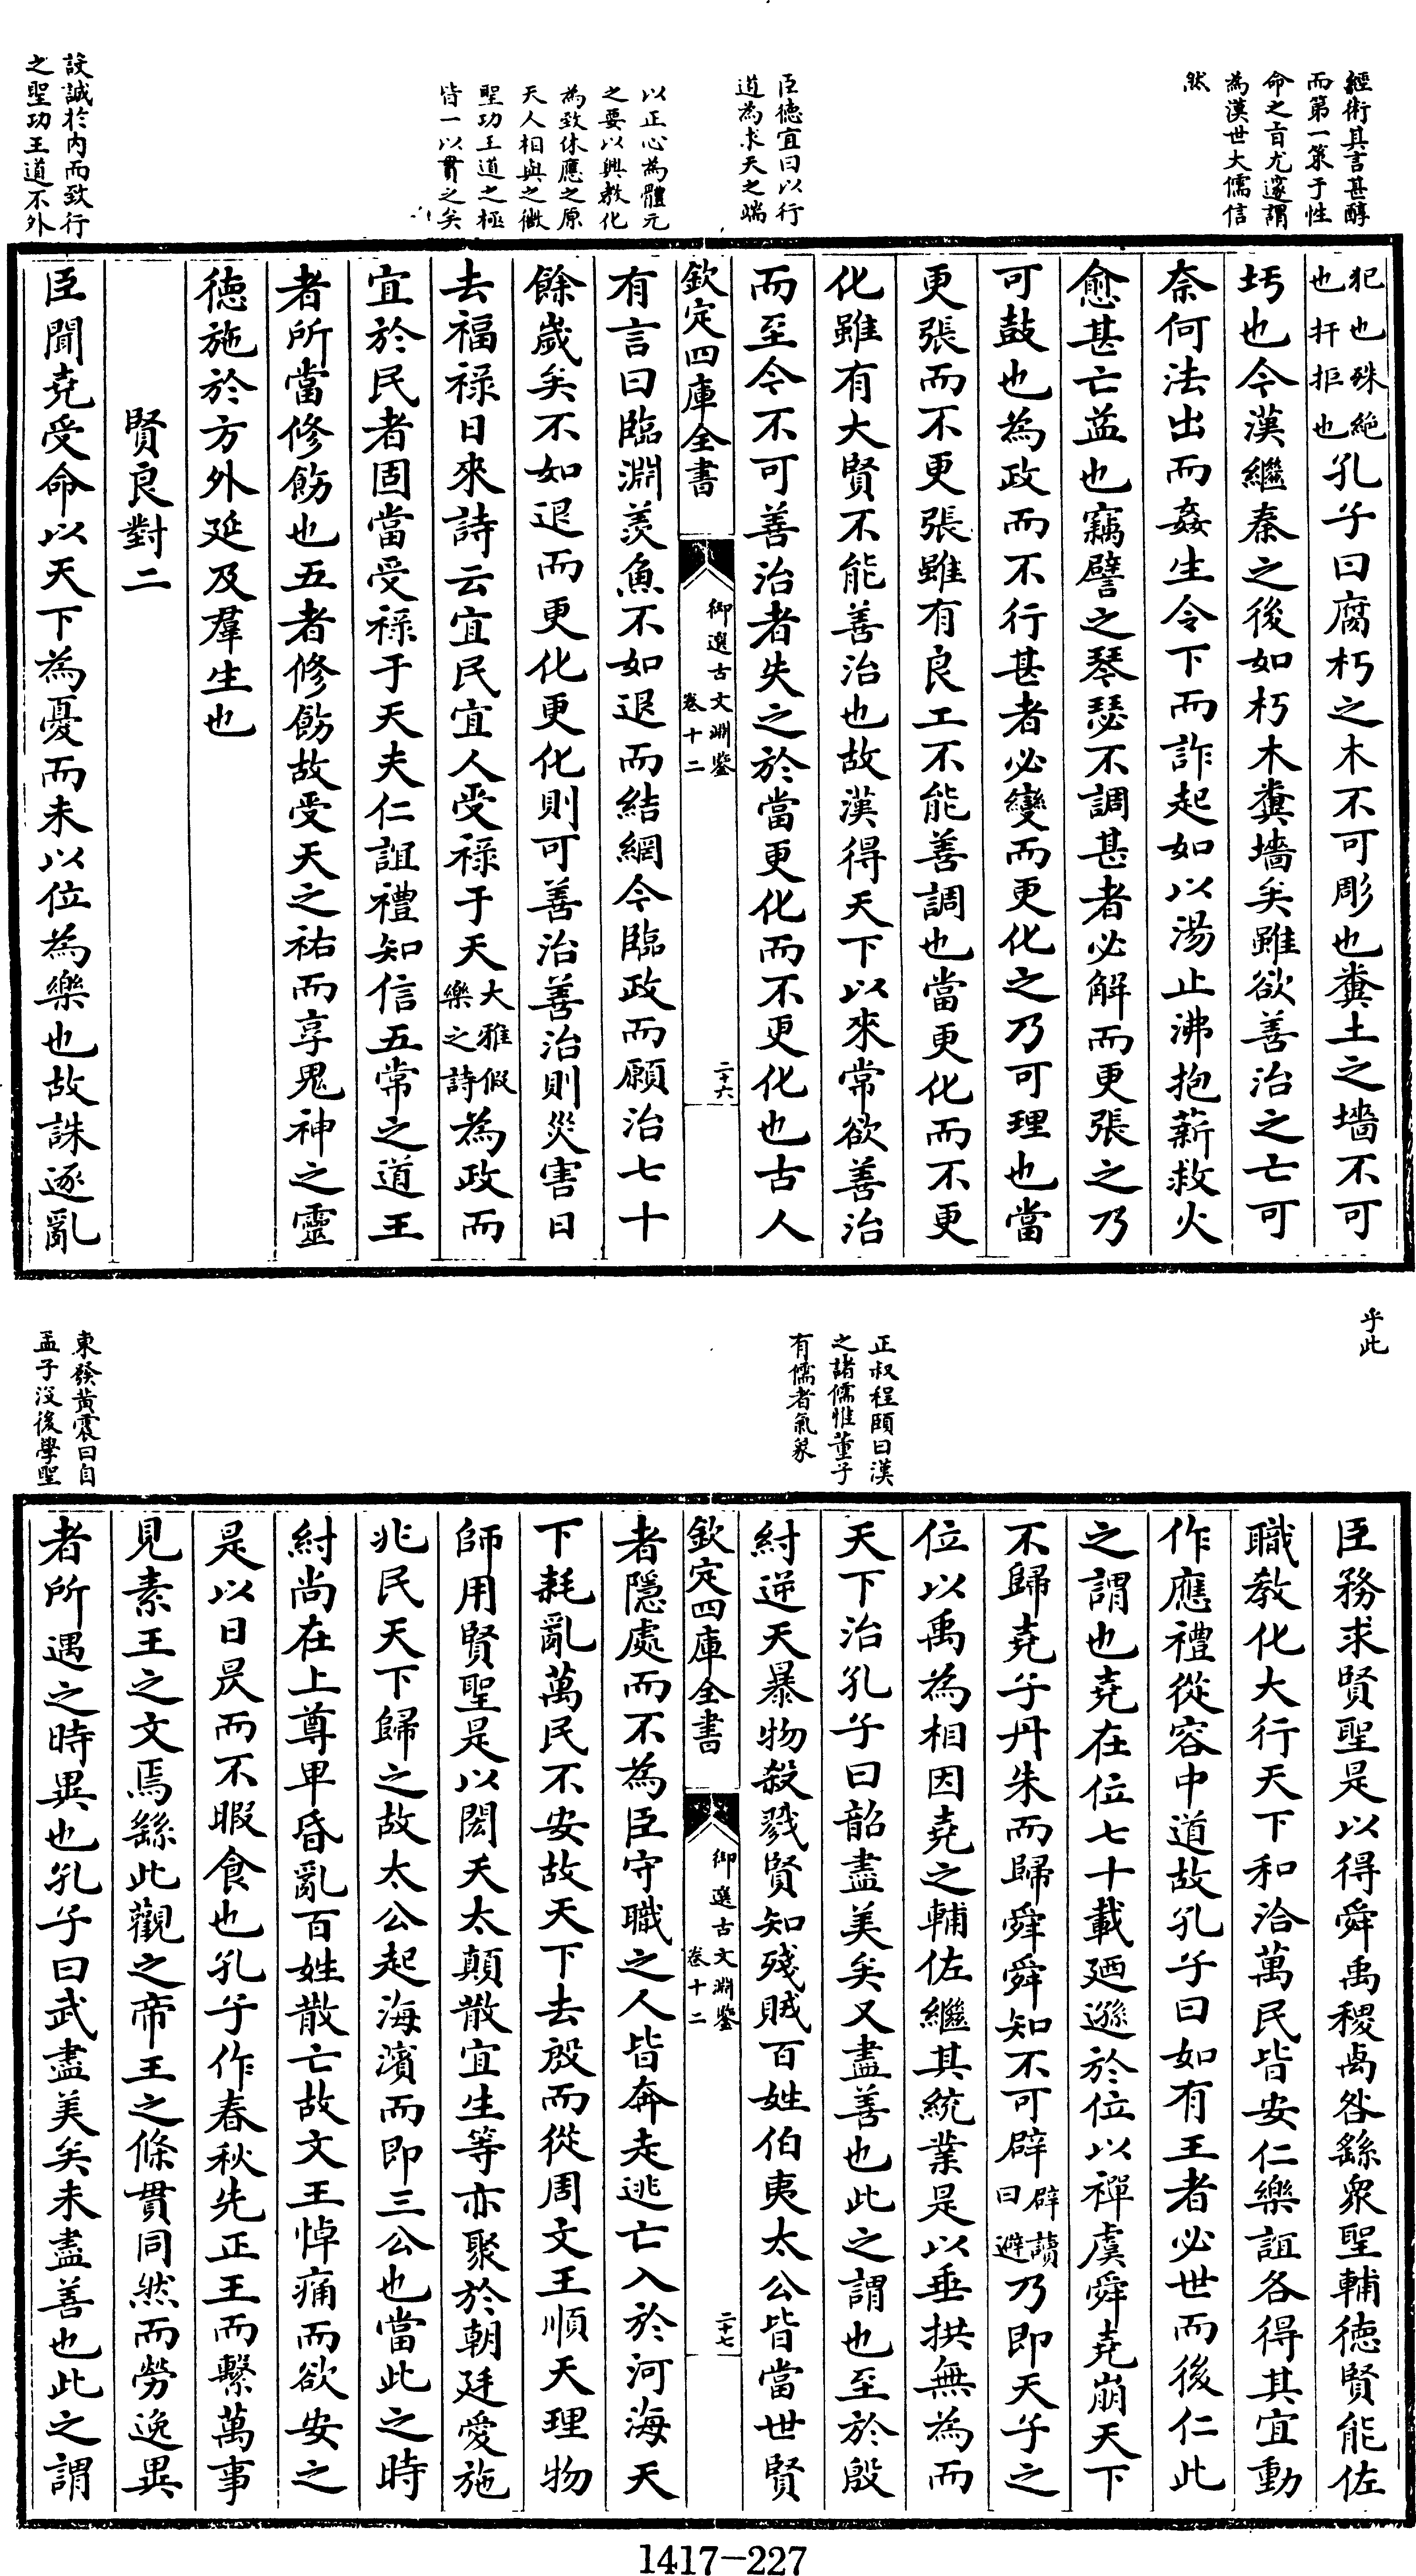 經術其言甚醇
而第一策于性
命之旨尤邃謂
為漢世大儒信
然
臣德宜曰以行
道為求天之端
以正心為體元
之要以興教化
為致休應之原
天人相與之微
聖功王道之極
皆一以貫之矣
設誠於内而致行
之聖功王道不外
犯也殊絶
也扞拒也
孔子曰腐朽之木不可彫也糞土之墻不可
圬也今漢繼秦之後如朽木糞墻矣雖欲善治之亡可
奈何法出而姦生令下而詐起如以湯止沸抱薪救火
愈甚亡益也竊譬之琴瑟不調甚者必解而更張之乃
可鼓也為政而不行甚者必變而更化之乃可理也當
更張而不更張雖有良工不能善調也當更化而不更
化雖有大賢不能善治也故漢得天下以來常欲善治
而至今不可善治者失之於當更化而不更化也古人
欽定四庫全書
御選古文淵鑒
卷十二
二十六
有言曰臨淵羡魚不如退而結網今臨政而願治七十
餘歲矣不如退而更化更化則可善治善治則災害日
去福禄日來詩云宜民宜人受禄于天大雅假樂之詩為政而
宜於民者固當受禄于天夫仁誼禮知信五常之道王
者所當修飭也五者修飭故受天之祐而享鬼神之靈
德施於方外延及羣生也
賢良對二
臣聞堯受命以天下為憂而未以位為樂也故誅逐亂
乎此
正叔程頤曰漢
之諸儒惟董子
有儒者氣象
東發黄震曰自
孟子沒後學聖
臣務求賢聖是以得舜禹稷卨咎繇衆聖輔德賢能佐
職教化大行天下和洽萬民皆安仁樂誼各得其宜動
作應禮從容中道故孔子曰如有王者必世而後仁此
之謂也堯在位七十載廼遜於位以禪虞舜堯崩天下
不歸堯子丹朱而歸舜舜知不可辟辟讀曰避乃即天子之
位以禹為相因堯之輔佐繼其統業是以垂拱無為而
天下治孔子曰韶盡美矣又盡善也此之謂也至於殷
紂逆天暴物殺戮賢知殘賊百姓伯夷太公皆當世賢
欽定四庫全書
御選古文淵鑒
卷十二
二十七
者隱處而不為臣守職之人皆奔走逃亡入於河海天
下耗亂萬民不安故天下去殷而從周文王順天理物
師用賢聖是以閎夭太顛散宜生等亦聚於朝廷愛施
兆民天下歸之故太公起海濱而即三公也當此之時
紂尚在上尊卑昏亂百姓散亡故文王悼痛而欲安之
是以日昃而不暇食也孔子作春秋先正王而繫萬事
見素王之文焉繇此觀之帝王之條貫同然而勞逸異
者所遇之時異也孔子曰武盡美矣未盡善也此之謂
1417-227